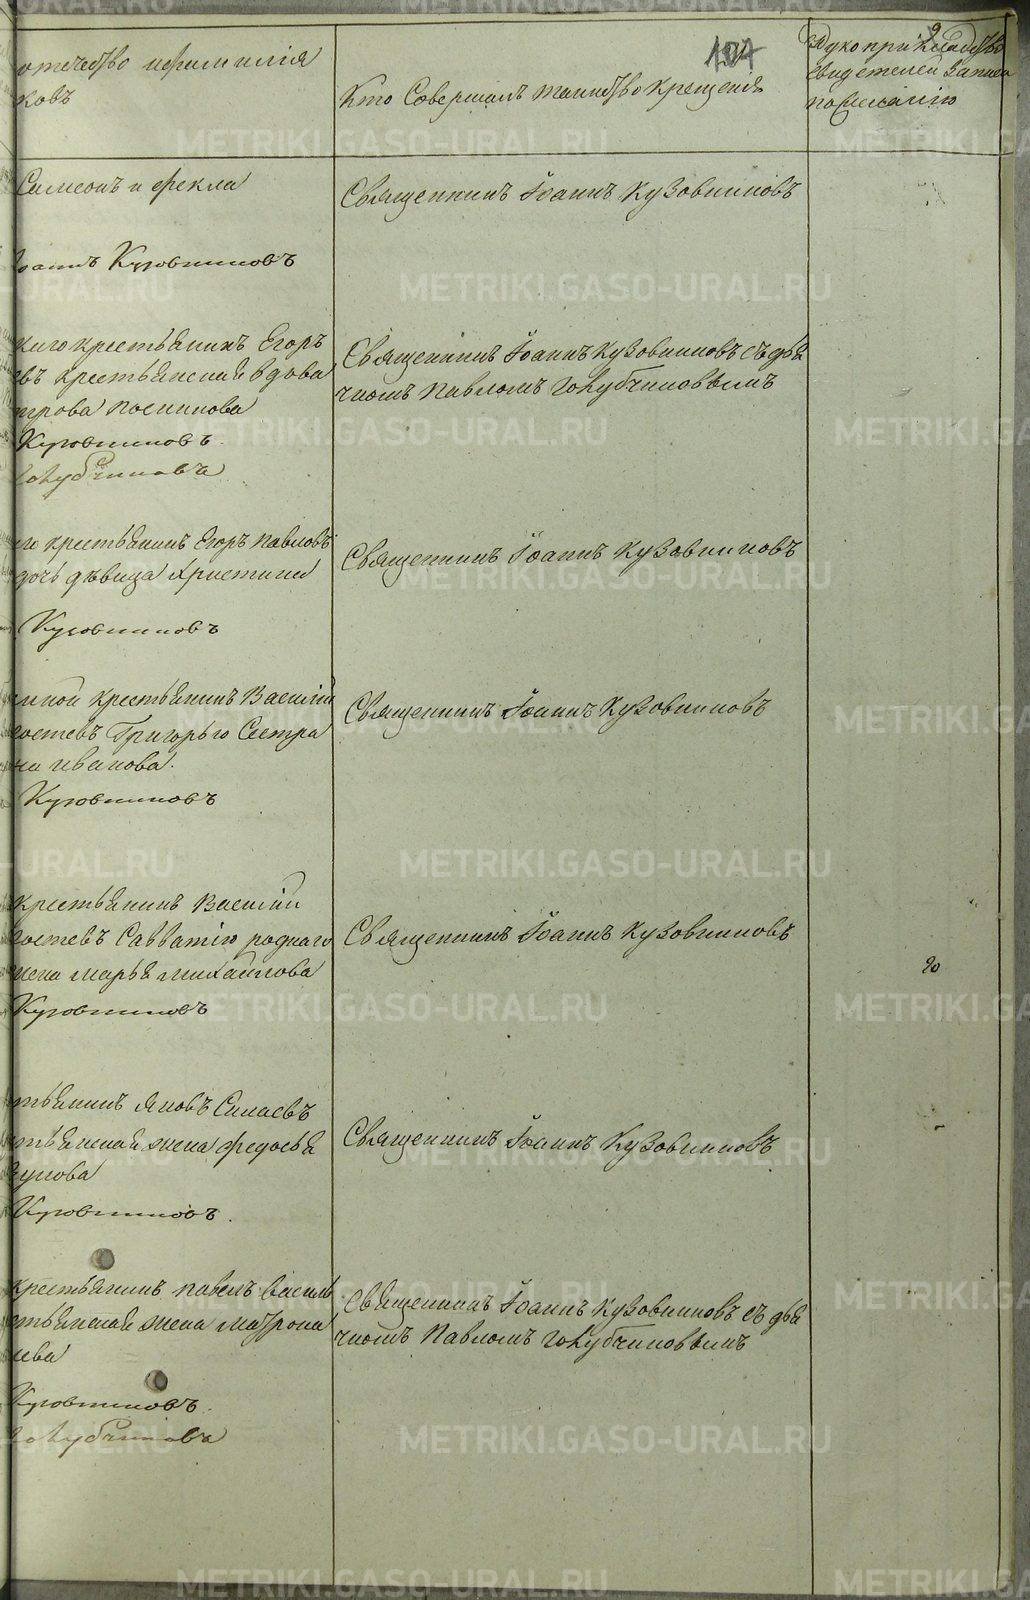 9
107
отчество и фамилія
ковъ
Кто Совершалъ таинство крещенія
Рукоприкладство
свидетелей записи
по желанію
Симеонъ и Фекла
Священникъ Іоаннъ Кузовниковъ
Іоаннъ Кузовниковъ
каго крестьянинъ Егоръ
въ крестьянская вдова
трова Посникова
Кузовниковъ
Голубчиковъ
Священникъ Іоаннъ Кузовниковъ съ дья
чкомъ Павломъ Голубчиковымъ
го крестьянинъ Егоръ Павловъ
дочь девица Христина
Кузовниковъ
Священникъ Іоаннъ Кузовниковъ
ской крестьянинъ Василій
остевъ Григорью Сестра
на Иванова.
Кузовниковъ
Священникъ Іоаннъ Кузовниковъ
крестьянинъ Василій
остевъ Савватію роднаго
жена Марья Михайлова
Кузовниковъ
Священникъ Іоаннъ Кузовниковъ
тьянинъ Яковъ Силаевъ
тьянская жена Федосья
гунова
Кузовниковъ.
Священникъ Іоаннъ Кузовниковъ
крестьянинъ Павелъ Василь
тьянская жена Матрона
ева
Кузовниковъ.
Голубчиковъ
Священникъ Іоаннъ Кузовниковъ съ дья
чкомъ Павломъ Голубчиковымъ
METRIKI.GASO-URAL.RU